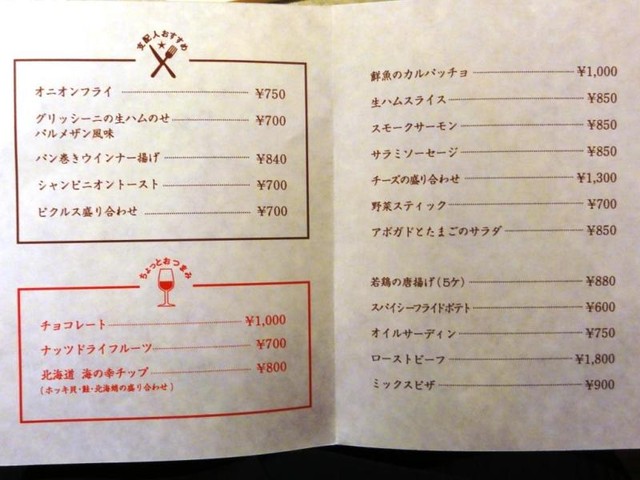 支配人おすすめ
オニオンフライ ¥750
グリッシーニの生ハムのせ ¥700
パルメザン風味
パン巻きウインナー揚げ ¥840
シャンピニオントースト ¥700
ピクルス盛り合わせ ¥700
ちょっとおつまみ
チョコレート ¥1,000
ナッツドライフルーツ ¥700
北海道 海の幸チップ ¥800
(ホッキ貝・鮭・北海鮹の盛り合わせ)
鮮魚のカルパッチョ ¥1,000
生ハムスライス ¥850
スモークサーモン ¥850
サラミソーセージ ¥850
チーズの盛り合わせ ¥1,300
野菜スティック ¥700
アボガドとたまごのサラダ ¥850
若鶏の唐揚げ(5ケ) ¥880
スパイシーフライドポテト ¥600
オイルサーディン ¥750
ローストビーフ ¥1,800
ミックスピザ ¥900